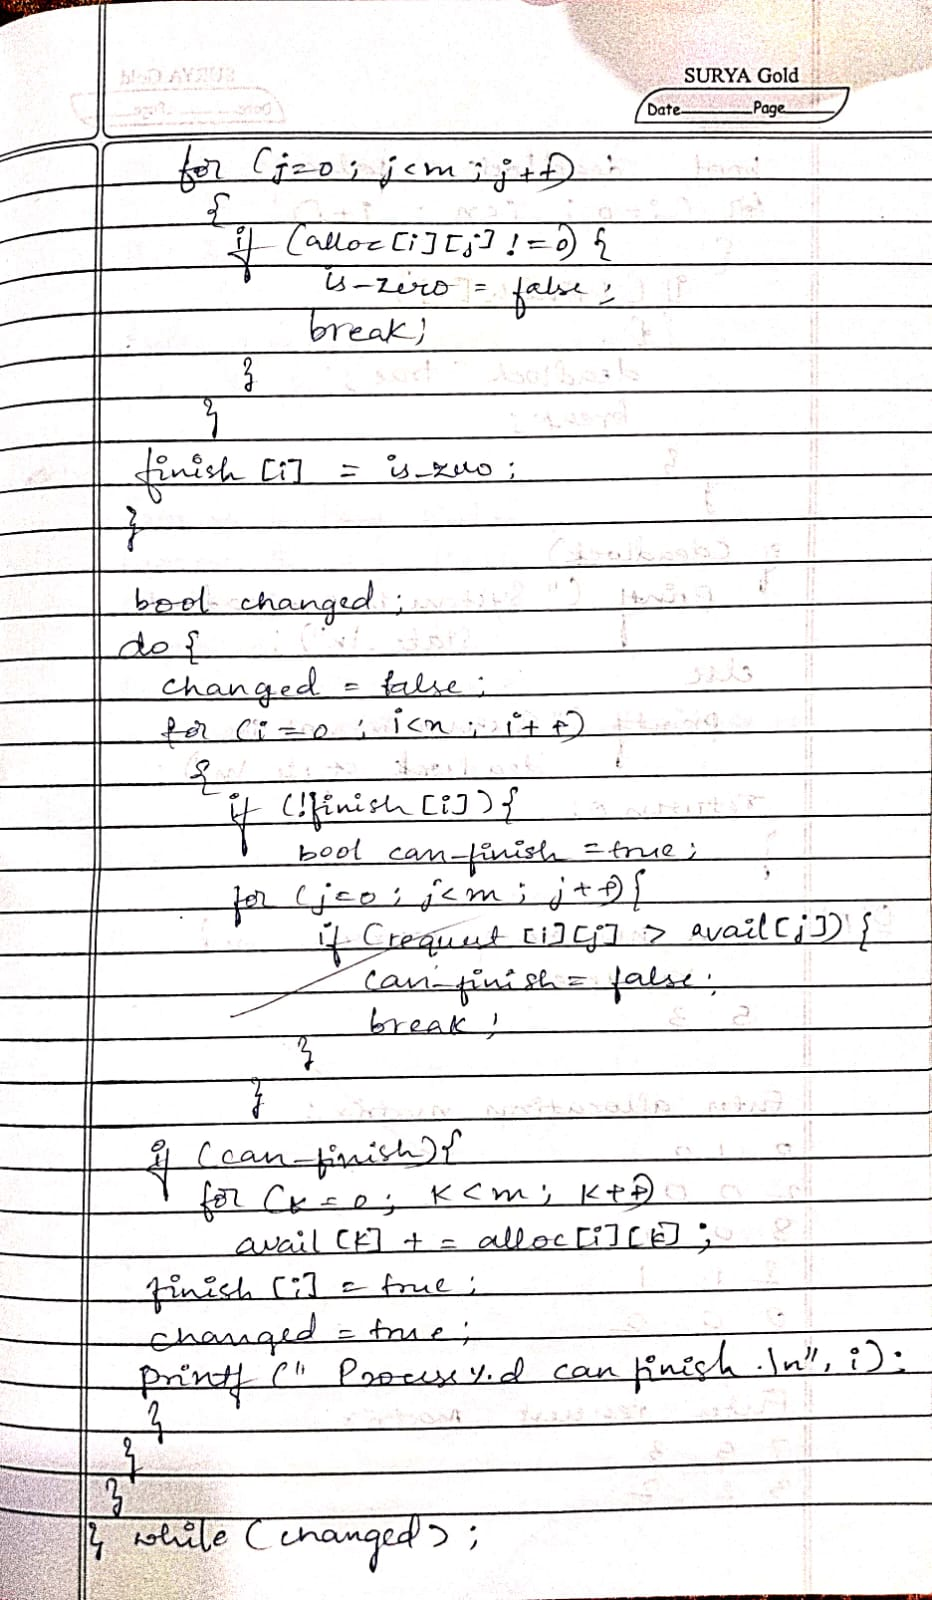 SURYA Gold
Date Page
for (j=0; j<m; j++)
{
if (alloc[i][j] != 0) {
is-zero = false;
break;
}
}
finish [i] = is_zero;
}
bool changed;
do {
changed = false;
for (i=0; i<n; i++)
{
if (!finish [i]) {
bool can-finish = true;
for (j=0; j<m; j++) {
if (request [i][j] > avail[j]) {
can-finish = false;
break;
}
}
if (can-finish) {
for (k=0; k<m; k++)
avail [k] += alloc[i][k];
finish [i] = true;
changed = true;
printf (" Process %d can finish.\n", i);
}
}
}
} while (changed);